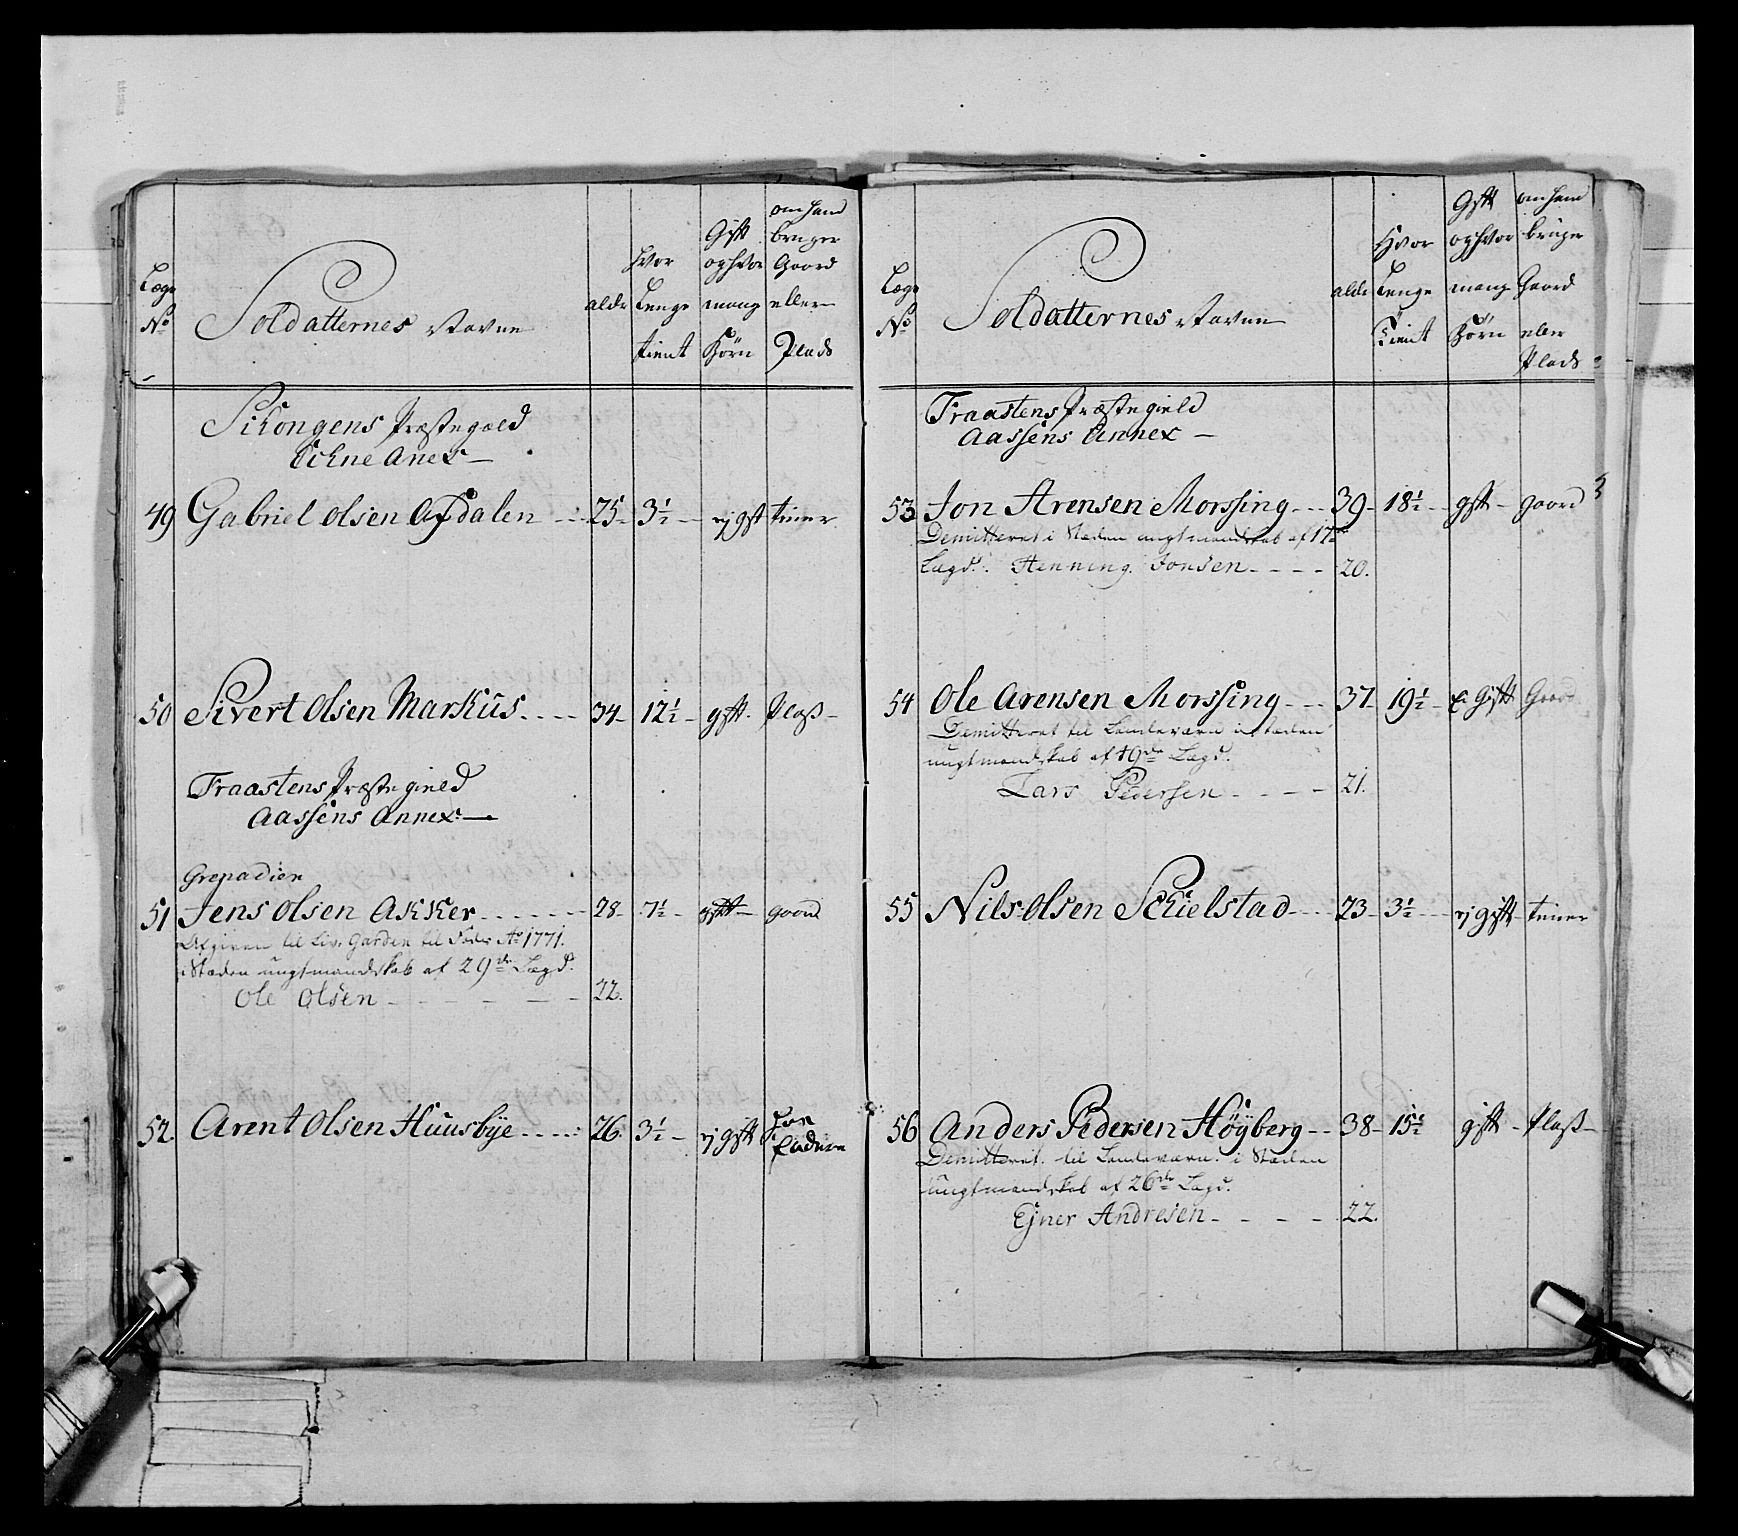 Lægs No
Soldatternes Navne
alder
hvor Lenge tient
Gift og hvor mang Börn
om hand bruger Gaard eller Plads
Schongens Præstegield
Eckne Anex
49 Gabriel Olsen Afdalen 25 3½ ej gift tiener
50 Sivert Olsen Markus 34 12½ gift Plaß
Fraastens Præstegield
Aassens Annex
Grenadier
51 Jens Olsen Akker 28 7½ gift gaard
Afgiven til Liv Garden til Fods Ao 1771.
i Stæden ungt mandskab af 29de Lægd.
Ole Olsen 22.
52 Arent Olsen Huusbye 26 3½ ej gift hos Fadren
Lægs No
Soldatternes Navne
alder
Hvor Lenge Tient
Gift og hvor mang Börn
om hand bruger Gaard eller Plads
Fraastens Præstegield
Aassens Annex
53 Jon Arensen Morssing 39 18½ gift gaard
Demitteret i Stæden ungt mandskab af 17de
Lægd. Henning Jonsen 20.
54 Ole Arensen Morssing 37 19½ Gift Gaard
Demitteret til Landeværn i stæden
ungt mandskab af 19de Lægd.
Lars Pedersen 21.
55 Nils Olsen Schielstad 23 3½ ej gift tiener
56 Anders Pedersen Höyberg 38 15½ gift Plaß
Demitteret til Landeværn i Stæden
ungt mandskab af 26de Lægd.
Ejner Andresen 22.